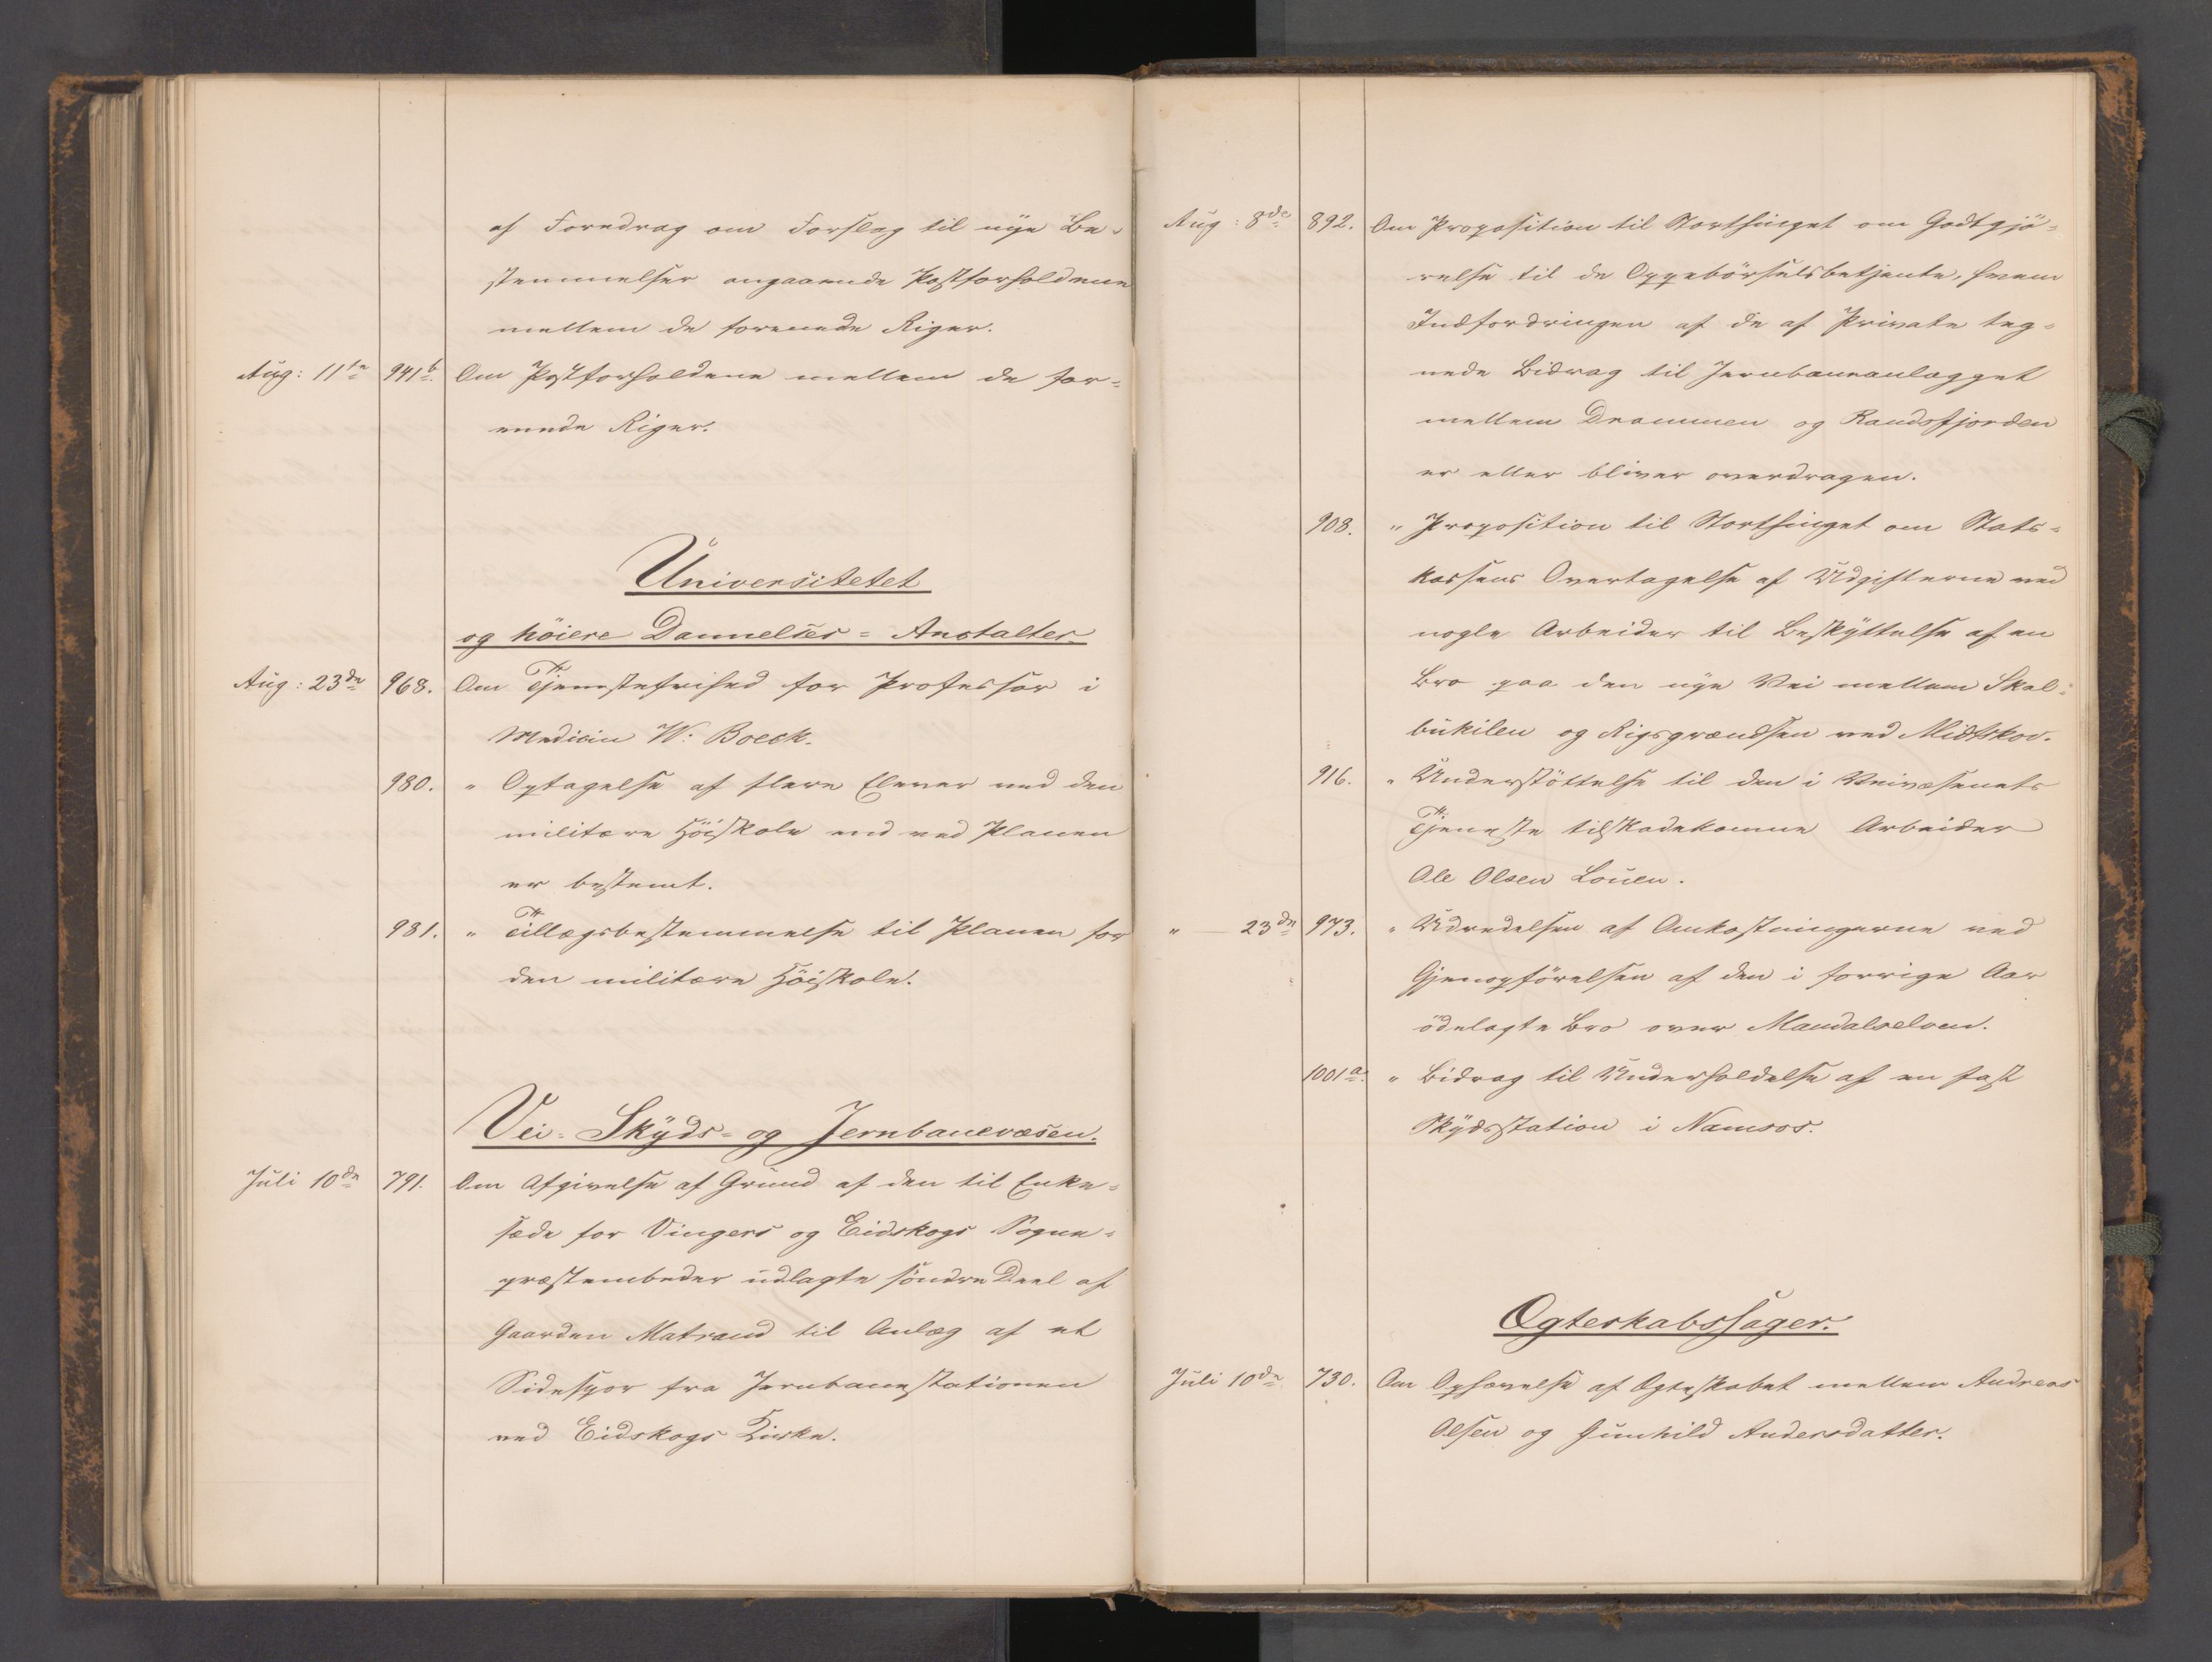 af Foredrag om Forslag til nye Be-
stemmelser angaaende Postforholdene
mellem de forenede Riger.
Aug: 11te 941b. Om Postforholdene mellem de for-
enede Riger.
Universitetet
og höiere Dannelses-Anstalter
Aug: 23de 968. Om Tjenestefrihed for Professor i
Medicin W: Boeck.
980. " Optagelse af flere Elever ved den
militære Höiskole end ved Planen
er bestemt.
981. " Tillægsbestemmelse til Planen for
den militære Höiskole.
Vei- Skyds- og Jernbanevæsen.
Juli 10de 791. Om Afgivelse af Grund af den til Enke-
sæde for Vingers og Eidskogs Sogne-
præstembeder udlagte söndre Deel af
Gaarden Matrand til Anlæg af et
Sidespor fra Jernbanestationen
ved Eidskogs Kirke.
Aug: 8de 892. Om Proposition til Storthinget om Godtgjö-
relse til de Oppebörselsbetjente, hvem
Indfordringen af de af Private teg-
nede Bidrag til Jernbaneanlægget
mellem Drammen og Randsfjorden
er eller bliver overdragen.
908. " Proposition til Storthinget om Stats-
kassens Overtagelse af Udgifterne ved
nogle Arbeider til Beskyttelse af en
Bro paa den nye Vei mellem Skal-
bukilen og Rigsgrændsen ved Midtskov.
916. " Understöttelse til den i Veivæsenets
Tjeneste tilskadekomne Arbeider
Ole Olsen Louen.
" — 23de 973. " Udredelsen af Omkostningerne ved
Gjenopförelsen af den i forrige Aar
ödelagte Bro over Mandalselven.
1001a. " Bidrag til Underholdelse af en fast
Skydsstation i Namsos.
Ægteskabssager.
Juli 10de 730. Om Ophævelse af Ægteskabet mellem Andreas
Olsen og Gunhild Andersdatter.